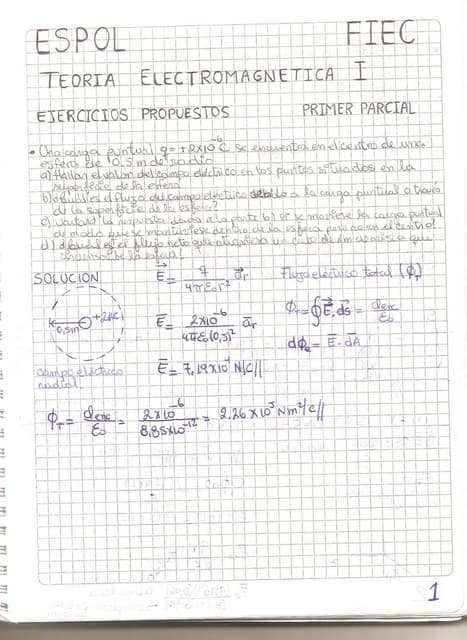 ESPOL FIEC
TEORIA ELECTROMAGNETICA I
EJERCICIOS PROPUESTOS PRIMER PARCIAL
• Una carga puntual q=+2x10⁻⁶C se encuentra en el centro de una
esfera de 0,5m de radio
a) Hallar el valor del campo eléctrico en los puntos situados en la
superficie de la esfera
b) ¿Cuál es el flujo del campo eléctrico debido a la carga puntual a través
de la superficie de la esfera?
c) ¿Variará la respuesta dada a la parte b) si se moviese la carga puntual
de modo que se mantuviese dentro de la esfera pero no en el centro?
d) ¿Cuál es el flujo neto que atraviesa un cubo de 1m de arista que
circunscribe la esfera?
SOLUCION
E = q / 4πε₀r² ār
Flujo eléctrico total (Φ_T)
+2μC
0,5m
Φ_T = ∮E.ds = qenc/ε₀
E = 2x10⁻⁶ / 4πε₀(0,5)² ār
dΦe = E.dA
campo eléctrico
radial
E = 7,19x10⁴ N/C//
Φ_T = qenc/ε₀ = 2x10⁻⁶ / 8,85x10⁻¹² = 2.26x10⁵ Nm²/c//
1